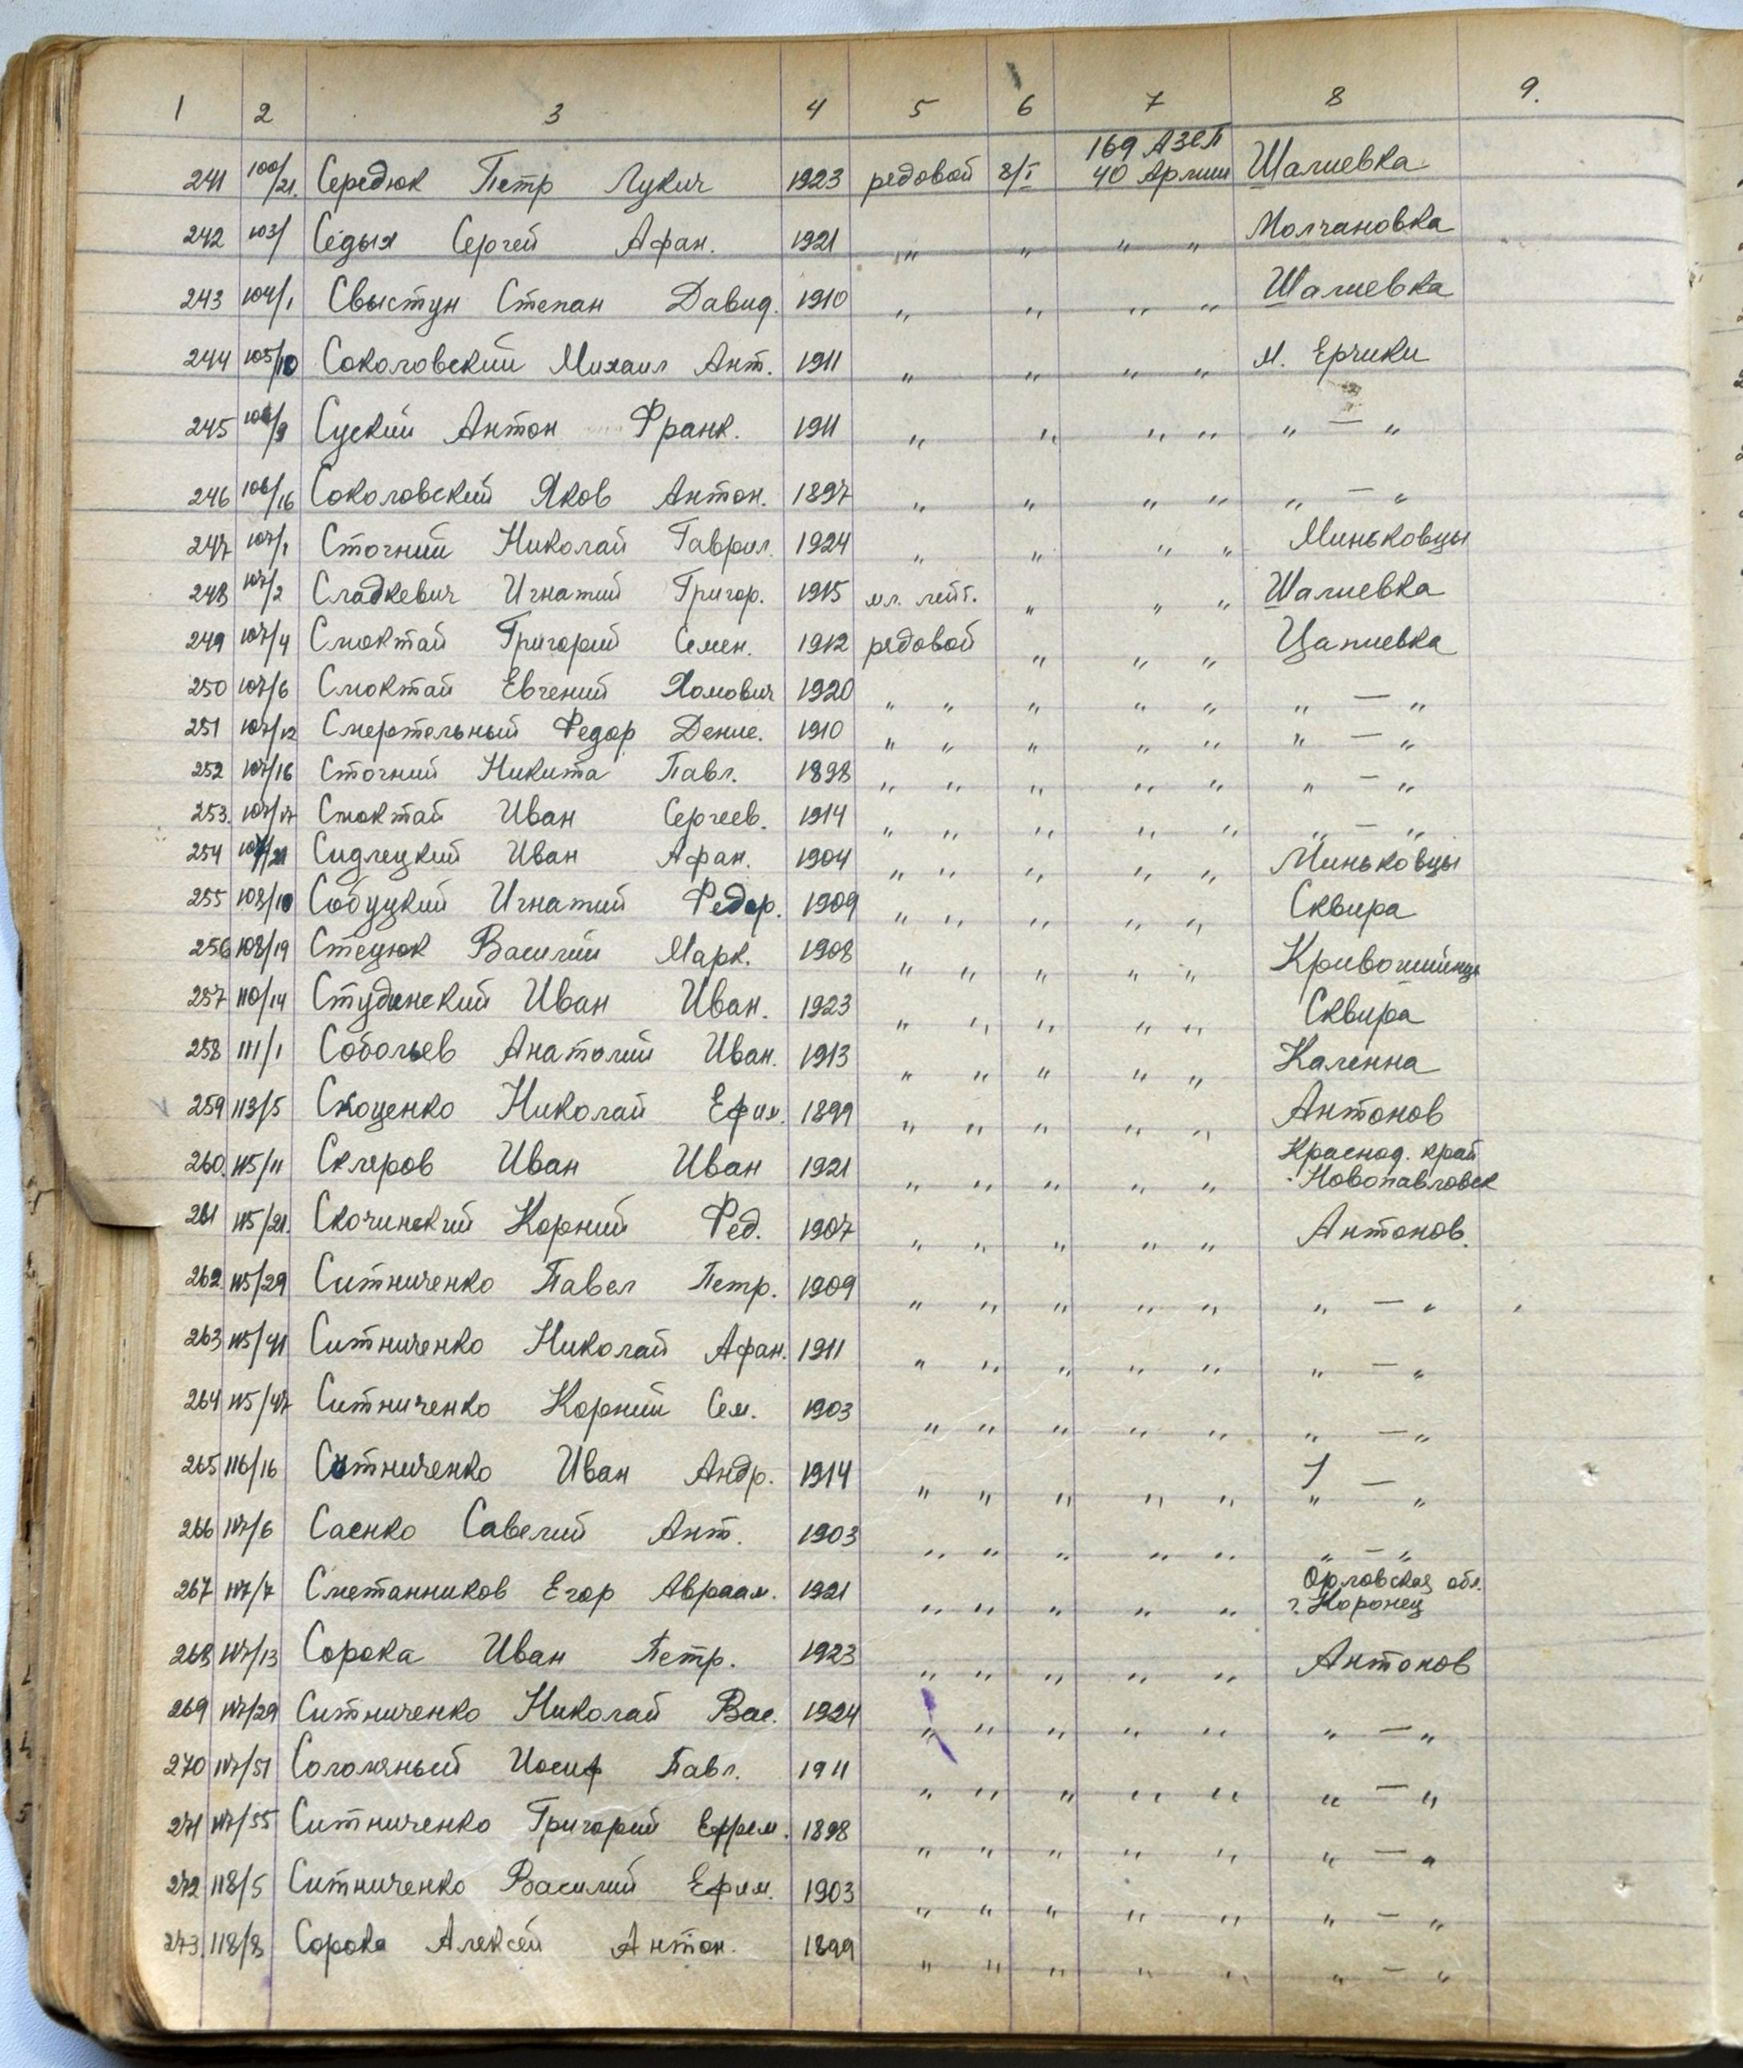 1 2 3 4 5 6 7 8 9.
169 АЗСП
241 100/21. Середюк Петр Лукич 1923 рядовой 8/I 40 Армии Шалиевка
242 103/ Седых Сергей Афан. 1921 " " " " Молчановка
243 104/1 Свыстун Степан Давид. 1910 " " " " Шалиевка
244 105/10 Соколовский Михаил Ант. 1911 " " " " м. Ерчики
245 106/9 Суский Антон Франк. 1911 " " " " " — "
246 106/16 Соколовский Яков Антон. 1897 " " " " " — "
247 107/1 Стогний Николай Гаврил. 1924 " " " " Миньковцы
248 107/2 Сладкевич Игнатий Григор. 1915 мл. лейт. " " " Шалиевка
249 107/4 Смоктай Григорий Семен. 1912 рядовой " " " Цапиевка
250 107/6 Смоктай Евгений Хомович 1920 " " " " " " — "
251 107/12 Смертельный Федор Дение. 1910 " " " " " " — "
252 107/16 Стогний Никита Павл. 1898 " " " " " " — "
253. 107/17 Смоктай Иван Сергеев. 1914 " " " " " " — "
254 107/21 Сидлецкий Иван Афан. 1904 " " " " " Миньковцы
255 108/10 Собуцкий Игнатий Федор. 1909 " " " " " Сквира
256 108/19 Стецюк Василий Марк. 1908 " " " " " Кривошеинцы
257 110/14 Студинский Иван Иван. 1923 " " " " " Сквира
258 111/1 Собольев Анатолий Иван. 1913 " " " " " Каленна
259 113/5 Скоценко Николай Ефим. 1899 " " " " " Антонов
Краснод. край
260. 115/11 Скляров Иван Иван 1921 " " " " " Новопавловск
261 115/21. Скочинский Корний Фед. 1907 " " " " " Антонов.
262. 115/29 Ситниченко Павел Петр. 1909 " " " " " " — "
263 115/41 Ситниченко Николай Афан. 1911 " " " " " " — "
264 115/47 Ситниченко Корний Сем. 1903 " " " " " " — "
265 116/16 Ситниченко Иван Андр. 1914 " " " " " " — "
266 117/6 Саенко Савелий Ант. 1903 " " " " " " — "
Орловская обл.
267 117/7 Сметанников Егор Авраам. 1921 " " " " " г. Коронец
268 117/13 Сорока Иван Петр. 1923 " " " " " Антонов
269 117/29 Ситниченко Николай Вас. 1924 " " " " " " — "
270 117/51 Соломяный Иосиф Павл. 1911 " " " " " " — "
271 117/55 Ситниченко Григорий Ефрем. 1898 " " " " " " — "
272 118/5 Ситниченко Василий Ефим. 1903 " " " " " " — "
273. 118/8 Сорока Алексей Антон. 1899 " " " " " " — "